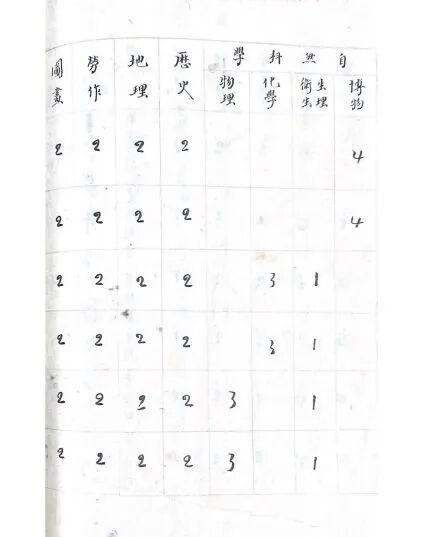 自然科學
博物 生理衛生 化學 物理 歷史 地理 勞作 圖畫
4 2 2 2 2
4 2 2 2 2
1 3 2 2 2 2
1 3 2 2 2 2
1 3 2 2 2 2
1 3 2 2 2 2